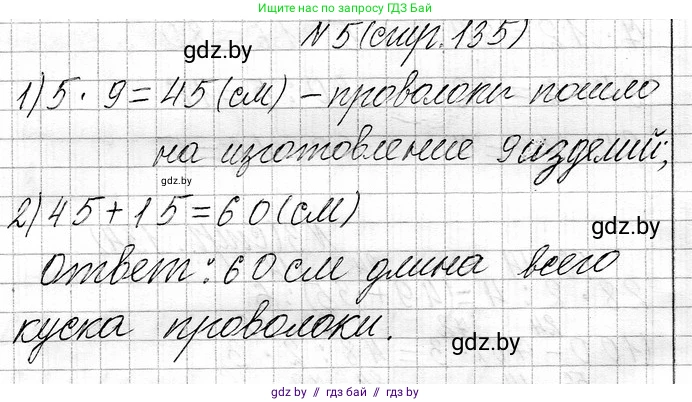 Ищите нас по запросу "ГДЗ Бай"
N 5 (стр. 135)
gdz.by
1) 5 · 9 = 45 (см) – проволоки пошло
на изготовление 9 изделий;
gdz.by
2) 45 + 15 = 60 (см)
gdz.by
Ответ: 60 см длина всего
куска проволоки.
gdz.by
gdz by // гдз бай // gdz.by